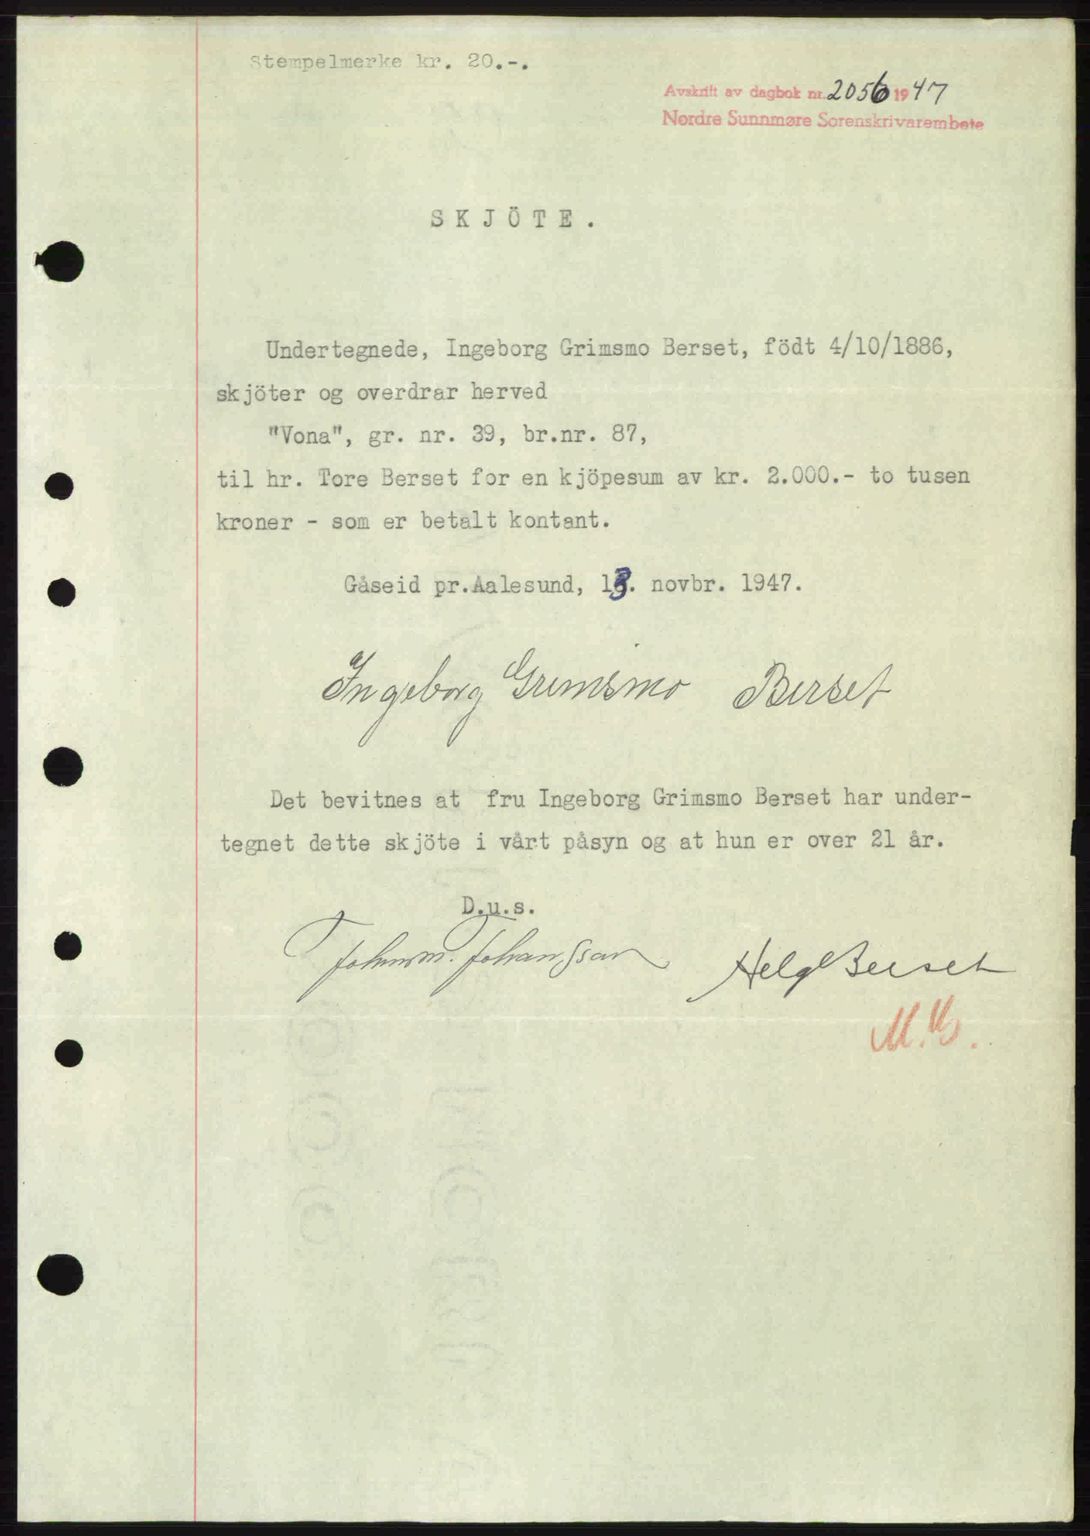 Stempelmerke kr. 20.-.
Avskrift av dagbok nr. 2056 1947
Nordre Sunnmøre Sorenskrivarembete
SKJÖTE.
Undertegnede, Ingeborg Grimsmo Berset, födt 4/10/1886,
skjöter og overdrar herved
"Vona", gr. nr. 39, br.nr. 87,
til hr. Tore Berset for en kjöpesum av kr. 2.000.- to tusen
kroner - som er betalt kontant.
Gåseid pr.Aalesund, 13. novbr. 1947.
Ingeborg Grimsmo Berset
Det bevitnes at fru Ingeborg Grimsmo Berset har under-
tegnet dette skjöte i vårt påsyn og at hun er over 21 år.
D.u.s.
Johansson Helg Berset